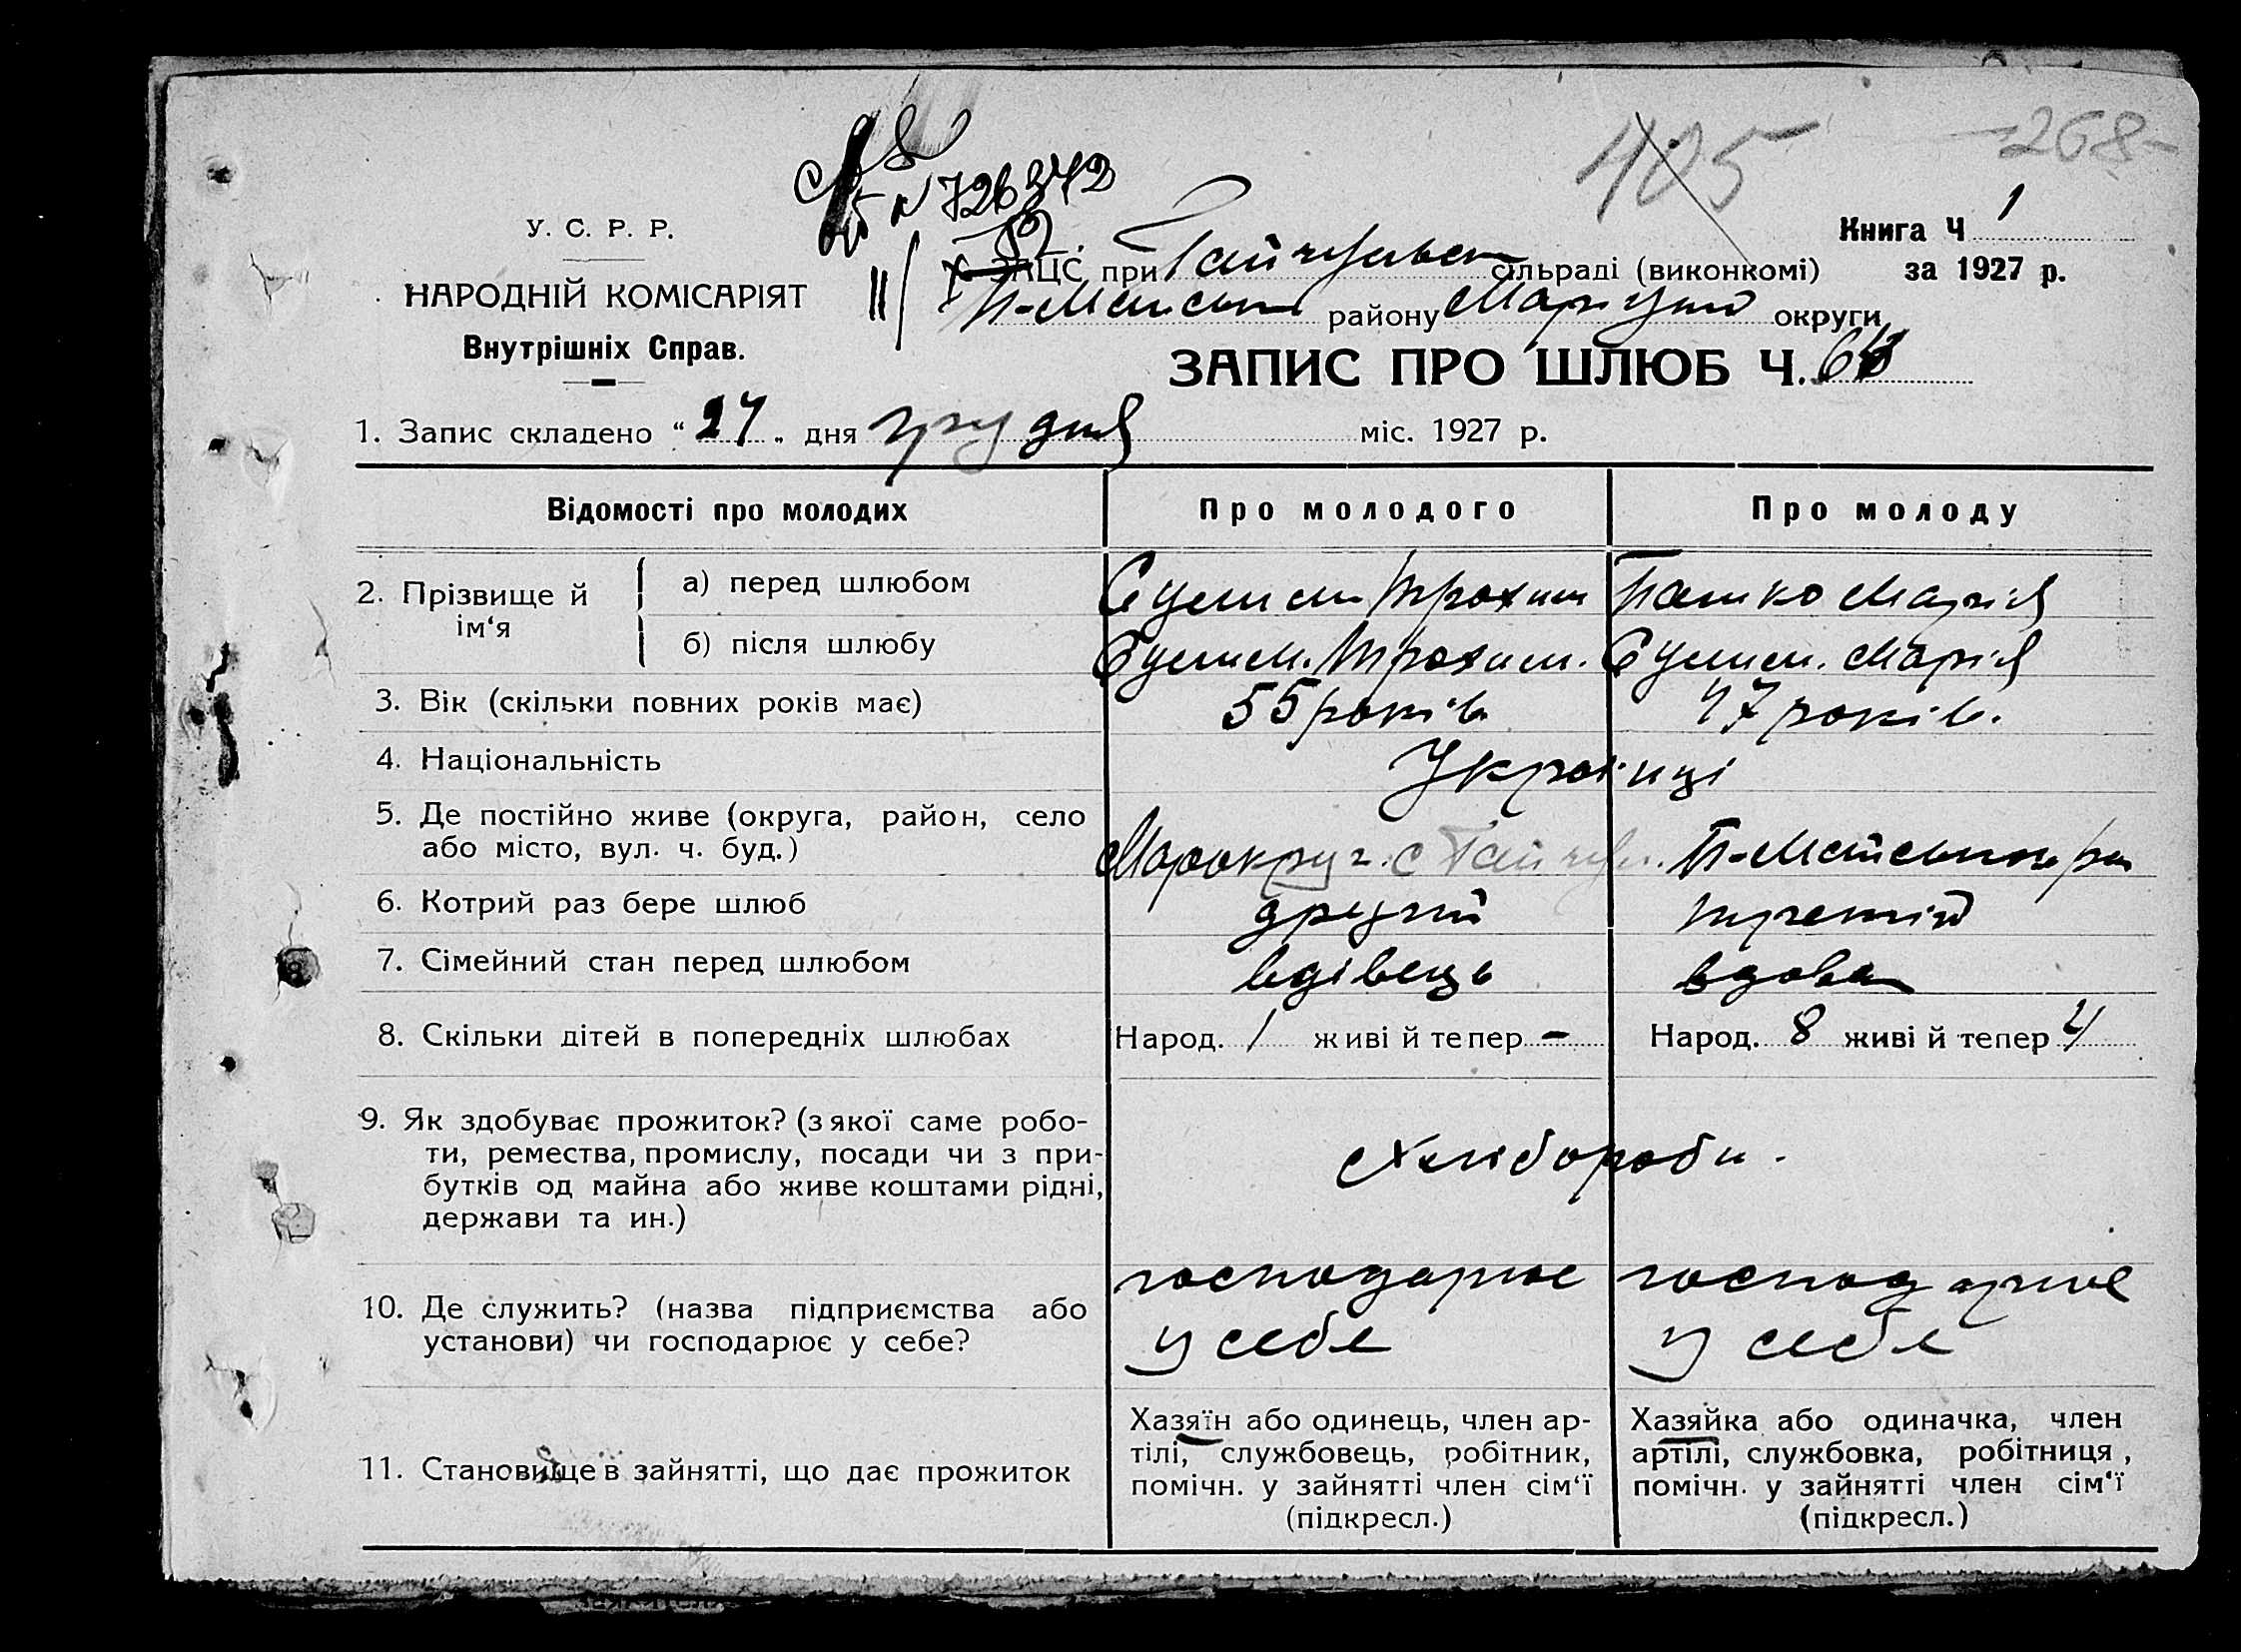 405
268
У. С. Р. Р.
НАРОДНІЙ КОМІСАРІЯТ
Внутрішніх Справ.
Книга Ч 1
за 1927 р.
ЗАЦС при сільраді (виконкомі)
району округи
ЗАПИС ПРО ШЛЮБ Ч.
1. Запис складено " 27 " дня грудня міс. 1927 р.
Відомості про молодих Про молодого Про молоду
2. Прізвище й ім'я
а) перед шлюбом Трохим Марія
б) після шлюбу Трохим. Марія
3. Вік (скільки повних років має) 55 років 47 років.
4. Національність Українці
5. Де постійно живе (округа, район, село
або місто, вул. ч. буд.) Марокруг. с Гайчул.
6. Котрий раз бере шлюб другий третій
7. Сімейний стан перед шлюбом вдівець вдова
8. Скільки дітей в попередніх шлюбах Народ. 1 живі й тепер - Народ. 8 живі й тепер 4
9. Як здобуває прожиток? (з якої саме робо-
ти, ремества, промислу, посади чи з при-
бутків од майна або живе коштами рідні,
держави та ин.)
Хлібороби.
10. Де служить? (назва підприємства або
установи) чи господарює у себе?
господарює у себе
господарює у себе
11. Становище в зайнятті, що дає прожиток
Хазяїн або одинець, член ар-
тілі, службовець, робітник,
помічн. у зайнятті член сім'ї
(підкресл.)
Хазяйка або одиначка, член
артілі, службовка, робітниця,
помічн. у зайнятті член сім'ї
(підкресл.)